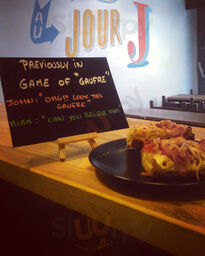 AU
JOUR J
PREVIOUSLY IN
GAME OF "GAUFRE"
JOHN: "OMG!! LOOK THIS
GAUFRE"
MIAM: "CAN YOU BELIEVE THAT"